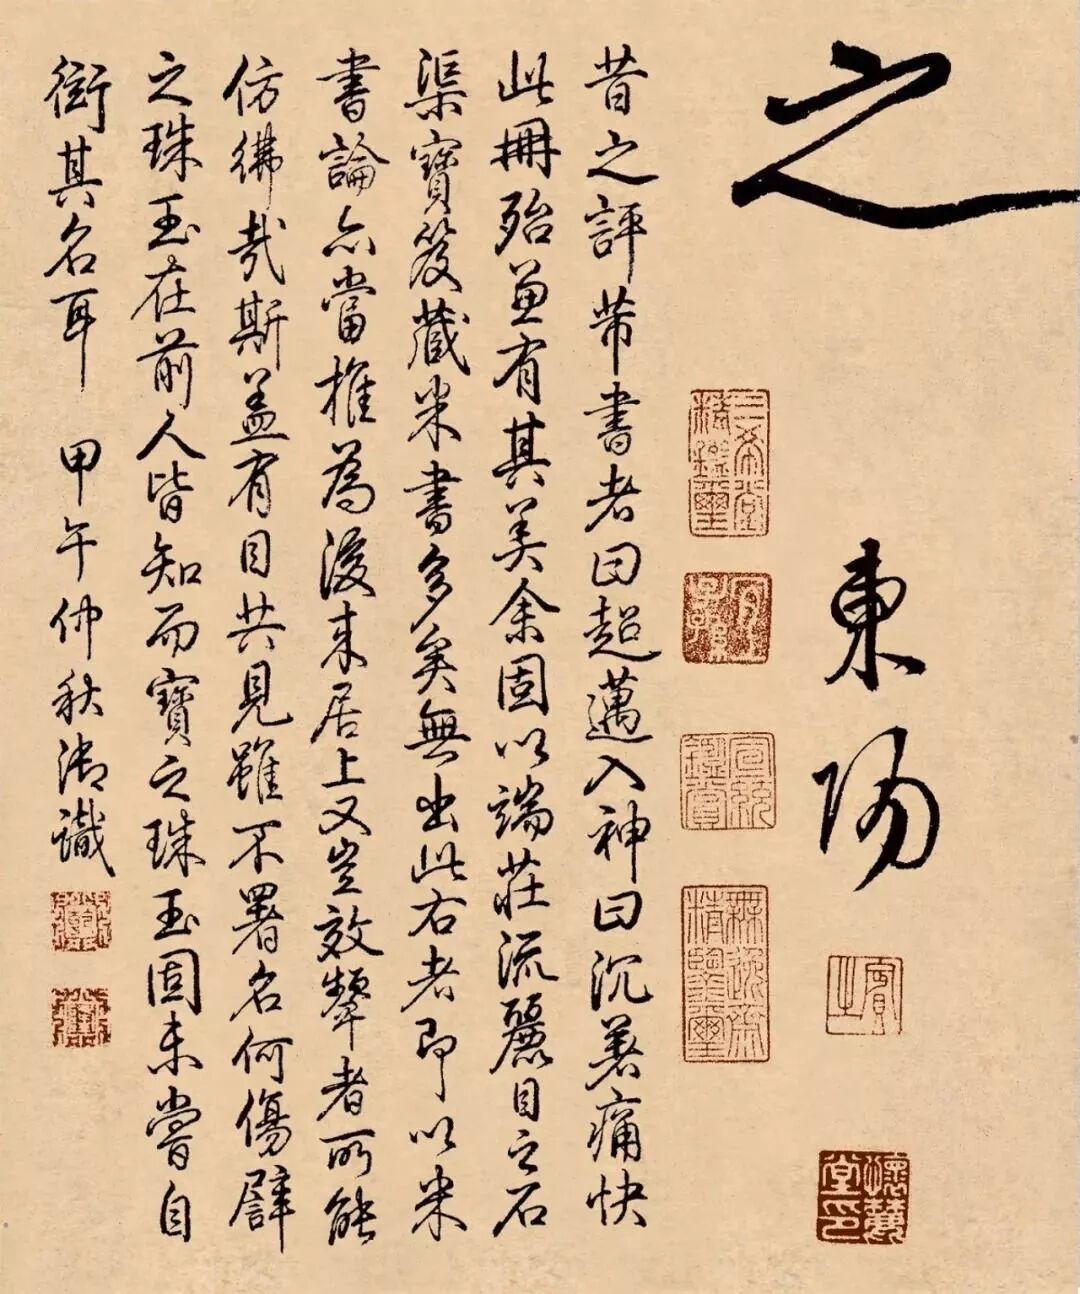 之
東陽
昔之評芾書者曰超邁入神曰沉著痛快
此冊殆兼有其美余固以端莊流麗目之石
渠寶笈藏米書多矣無出此右者即以米
書論亦當推為後來居上又豈效顰者所能
仿彿哉斯蓋有目共見雖不署名何傷譬
之珠玉在前人皆知而寶之珠玉固未嘗自
衒其名耳 甲午仲秋御識
三希堂精鑑璽
宜子孫
宣統鑑賞
無逸齋精鑒璽